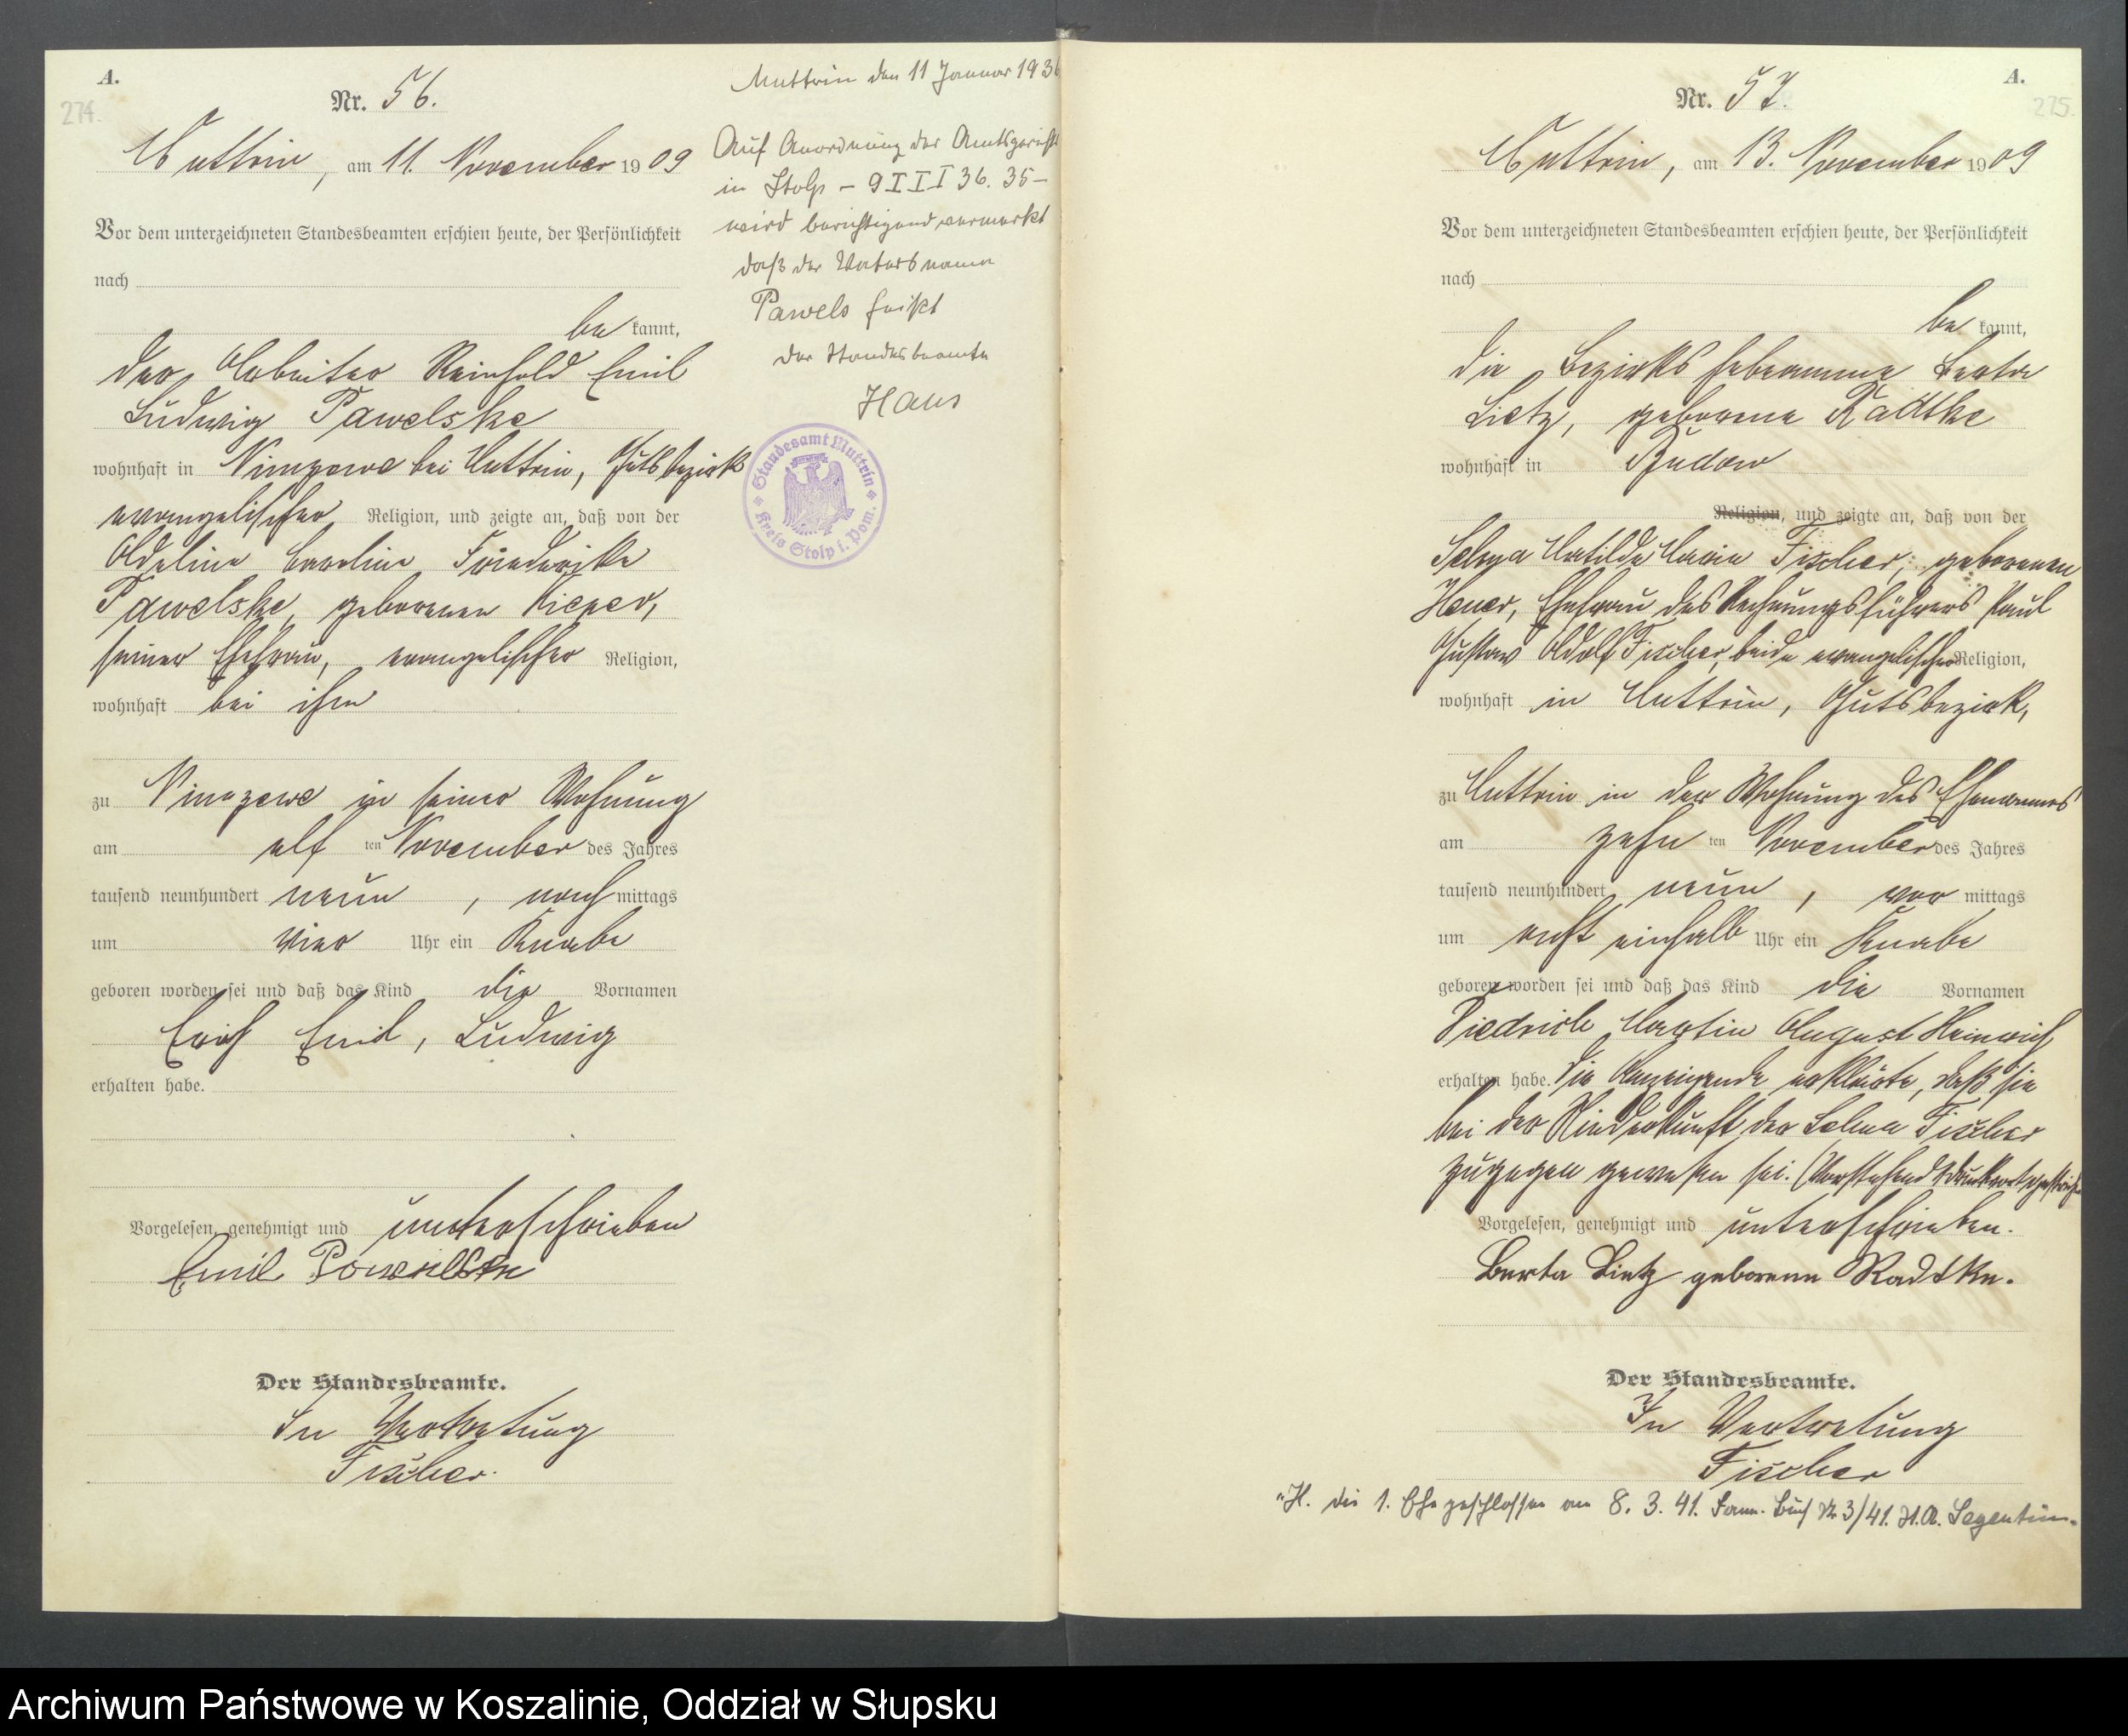 A.
274.
Nr. 56.
Muttrin, am 11. November 1909
Vor dem unterzeichneten Standesbeamten erschien heute, der Persönlichkeit
nach
be kannt,
der Arbeiter Reinhold Emil
Ludwig Pawelske
wohnhaft in Nimzewe bei Muttrin, Gutsbezirk
evangelischer Religion, und zeigte an, daß von der
Adeline Caroline Friederike
Pawelske, geborenen Kieper,
seiner Ehefrau, evangelischer Religion,
wohnhaft bei ihm
zu Nimzewe in seiner Wohnung
am elf ten November des Jahres
tausend neunhundert neun, nach mittags
um vier Uhr ein Knabe
geboren worden sei und daß das Kind die Vornamen
Erich Emil, Ludwig
erhalten habe.
Vorgelesen, genehmigt und unterschrieben
Emil Pawelske
Der Standesbeamte.
In Vertretung
Fischer.
Muttrin den 11 Januar 1936
Auf Anordnung der Amtsgericht
in Stolp – 9 III 36. 35 –
wird berichtigend vermerkt
daß der Vatersname
Pawels heißt
Der Standesbeamte
Haus
Standesamt Muttrin
Kreis Stolp i. Pom.
A.
275.
Nr. 57.
Muttrin, am 13. November 1909
Vor dem unterzeichneten Standesbeamten erschien heute, der Persönlichkeit
nach
be kannt,
die Bezirkshebeamme Berta
Lietz, geborene Radtke
wohnhaft in Budow
Religion, und zeigte an, daß von der
Selma Matilde Marie Fischer, geborenen
Heuer, Ehefrau des Rechnungsführers Paul
Gustav Adolf Fischer, beide evangelischer Religion,
wohnhaft in Muttrin, Gutsbezirk,
zu Muttrin in der Wohnung des Ehemannes
am zehn ten November des Jahres
tausend neunhundert neun, vor mittags
um acht einhalb Uhr ein Knabe
geboren worden sei und daß das Kind die Vornamen
Diedrich Martin August Heinrich
erhalten habe. Die Anzeigende erklärte, daß sie
bei der Niederkunft der Selma Fischer
zugegen gewesen sei. (Vorstehend 1 Druckwort gestrichen
Vorgelesen, genehmigt und unterschrieben.
Berta Lietz geborene Radtke.
Der Standesbeamte.
In Vertretung
Fischer
H. die 1. Ehe geschlossen am 8. 3. 41. Fam. Buch Nr 3/41. St.A.
Archiwum Państwowe w Koszalinie, Oddział w Słupsku